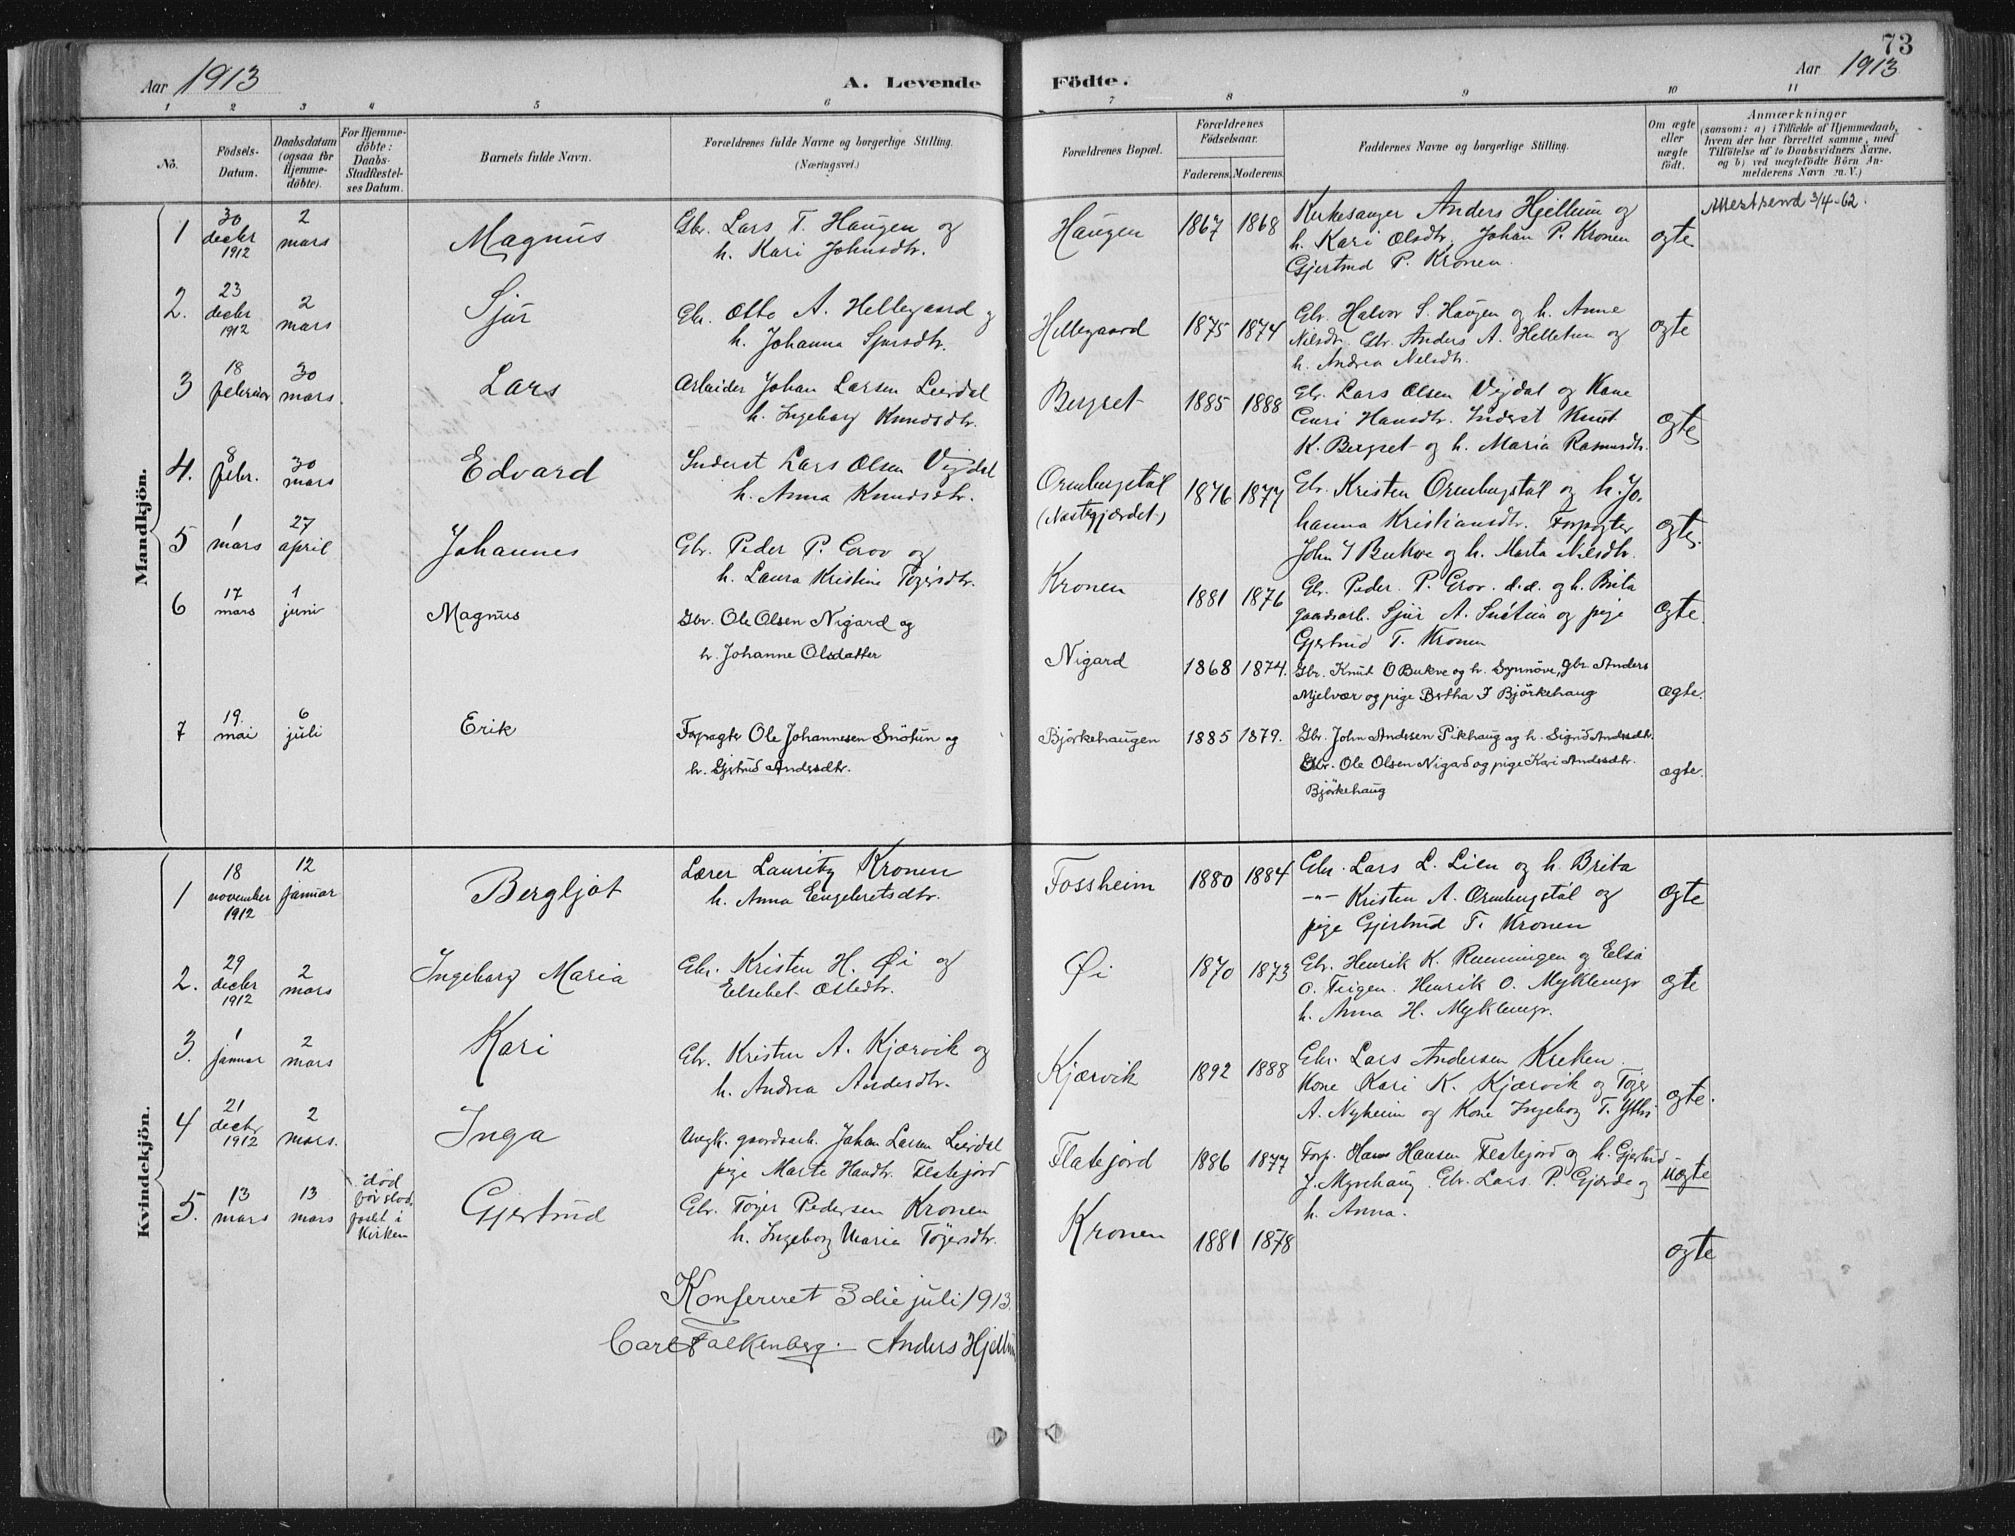 73
Aar 1913
A. Levende Födte.
Aar 1913
1 2 3 4 5 6 7 8 9 10 11
No.
Födsels-Datum.
Daabsdatum (ogsaa for Hjemmedöbte).
For Hjemmedöbte: Daabs-Stadfæstelses Datum.
Barnets fulde Navn.
Forældrenes fulde Navne og borgerlige Stilling. (Næringsvei.)
Forældrenes Bopæl.
Forældrenes Födselsaar.
Faderens. Moderens.
Faddernes Navne og borgerlige Stilling.
Om ægte eller uægte födt.
Anmærkninger (saasom: a) i Tilfælde af Hjemmedaab, hvem der har forrettet samme, med Tilföielse af to Daabsvidners Navne. og b) ved uegtefödte Börn Anmelderens Navn m. V.)
Mandkjön.
1 30 decbr 1912 2 mars Magnus Gbr. Lars T. Haugen og
h. Kari Johnsdtr. Haugen 1867 1868 Kirkesanger Anders Hjellum og
h. Kari Olsdtr, Johan P. Kronen
Gjertrud P. Kronen. ægte Attestsend 3/4-62.
2. 23 decbr 1912 2 mars Sjur Gbr. Otto A. Hellegaard og
h. Johanna Sjursdtr. Hellegaard 1875 1874 Gbr. Halvor S. Haugen og h. Anne
Nilsdtr. Gbr. Anders A. Helletun og
h. Andrea Nilsdtr. ægte
3 18 februar 30 mars. Lars Arbeider Johan Larsen Leirdal
h. Ingeborg Knudsdtr. Bergset 1885 1888 Gbr. Lars Olsen Vigdal og Kone
Guri Hansdtr. Inderst Knut
K. Bergset og h. Maria Rasmusdtr. ægte
4. 8 febr. 30 mars Edvard Inderst Lars Olsen Vigdal
h. Anna Knudsdtr. Ormbergstøl
(Nastegjærdet) 1876 1877 Gbr. Kristen Ormbergstøl og h. Jo-
hanna Kristiansdtr. Forpagter
John I Bukve og h. Marta Nilsdtr. ægte
5 1 mars 27 april Johannes Gbr. Peder P. Grov og
h. Laura Kristine Tøgersdtr. Kronen 1881 1876 Gbr. Peder P. Grov. d.æ. og h. Brita
gaardsarb. Sjur A. Snøtun og pige
Gjertrud T. Kronen ægte.
6 17 mars 1 juni Magnus Gbr. Ole Olsen Nigard og
h. Johanne Olsdatter Nigard 1868 1874. Gbr. Knut O Bukve og h. Synnöve, Gbr. Anders
Mjelvær og pige Bertha I Björkehaug ægte.
7 19 mai 6 juli Erik Forpagter Ole Johannesen Snötun og
h. Gjertrud Andersdtr. Björkehaugen 1885 1879. Gbr. John Andersen Pikhaug og h. Sigrid Andersdtr.
Gbr. Ole Olsen Nigard og pige Kari Andersdtr.
Björkehaug ægte.
Kvindekjön.
1 18 november 1912 12 januar Bergljot Lærer Lauritz Kronen
h. Anna Engebretsdtr. Fossheim 1880 1884 Gbr. Lars L. Lien og h. Brita
-"- Kristen A. Ormbergstøl og
pige Gjertrud T. Kronen ægte
2. 29 decbr 1912 2 mars Ingeborg Maria Gbr. Kristen H. Øi og
Elsebet Olsdtr. Øi 1870 1873 Gbr. Henrik K. Rønningen og Elsa
O. Teigen. Henrik O. Myklemyr
h. Anna H. Myklemyr. ægte
3. 1 januar 2 mars Kari Gbr. Kristen A. Kjærvik og
h. Andrea Andersdtr. Kjærvik 1892 1888 Gbr. Lars Andersen Kreken.
Kone Kari K. Kjærvik og Tøger
A. Nyheim og Kone Ingeborg T. Ytri ægte.
4 21 decbr 1912 2 mars. Inga Ungk. gaardsarb. Johan Larsen Leirdal
pige Marte Hansdtr. Flatejord Flatejord 1886 1877 Forp. Hans Hansen Flatejord og h. Gjertrud
J. Myrehaug. Gbr. Lars P. Gjerde og
h. Anna. uægte
5. 13 mars 13 mars død før stadfæstet i Kirken Gjertrud Gbr. Tøger Pedersen Kronen
h. Ingeborg Maria Tøgersdtr. Kronen 1881 1878 ægte
Konfereret 3die juli 1913.
Carl Falkenberg. Anders Hjellum